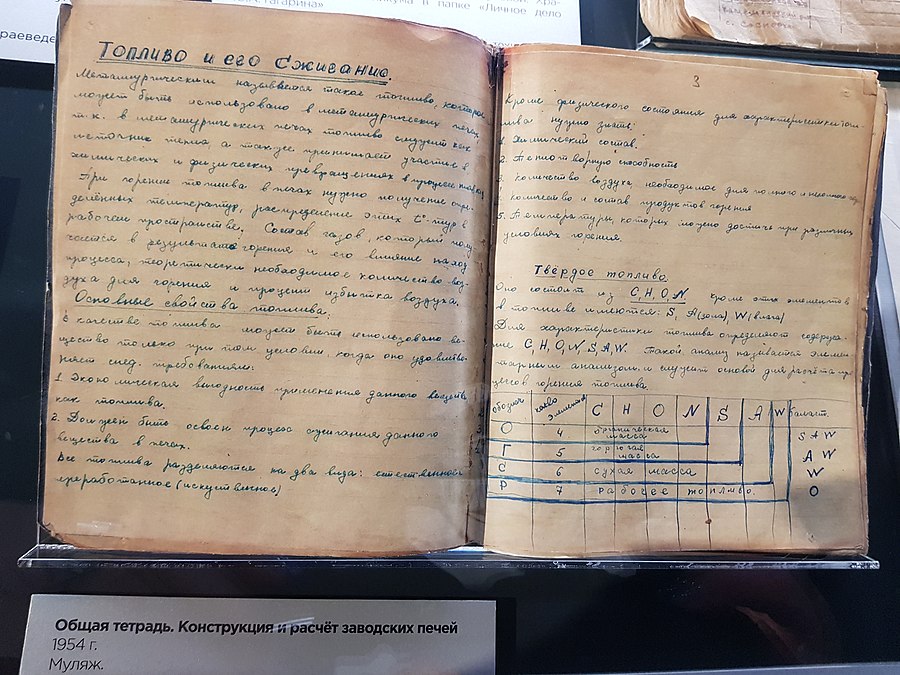 Гагарина»
ума в папке «Личное дело
раеведе
Топливо и его Сжигание.
Металлургическим называется такое топливо, которое
может быть использовано в металлургических печах
т.к. в металлургических печах топливо служит как
источник тепла а также принимает участие в
химических и физических превращениях в процессе плавки
При горении топлива в печах нужно получение опре-
делённых температур, распределение этих t°-тур в
рабочем пространстве. Состав газов, который полу-
чается в результате горения и его влияние на ход
процесса, теоретически необходимое количество воз-
духа для горения и процент избытка воздуха.
Основные свойства топлива:
В качестве топлива может быть использовано ве-
щество только при том условии, когда оно удовлетво-
ряет след. требованиям:
1. Экономическая выгодность применения данного вещества
как топлива.
2. Должен быть освоен процесс сжигания данного
вещества в печах.
Все топлива разделяются на два вида: естественное
переработанное (искуственное)
3
Кроме физического состояния для характеристики топ-
лива нужно знать:
1. Химический состав.
2. Теплотворную способность
3. Количество воздуха, необходимое для полного и неполного
количество и состав продуктов горения
5. Температуры, которых можно достичь при различных
условиях горения.
Твёрдое топливо
Оно состоит из C, H, O, N кроме этих элементов
в топливе имеются: S, A (зола), W (влага)
Для характеристики топлива определяют содержа-
ние C, H, O, N, S, A, W. Такой анализ называется элемен-
тарным анализом и служит основой для расчёта про-
цессов горения топлива.
обознач колво элементов C H O N S A W баласт.
О 4 органическая масса S A W
Г 5 горючая масса A W
С 6 сухая масса W
Р 7 рабочее топливо. O
Общая тетрадь. Конструкция и расчёт заводских печей
1954 г.
Муляж.